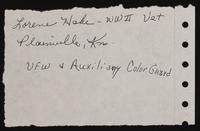 Lorene Hake - WW II Vet
Plainville, Kn.
VFW & Auxiliary Color Guard